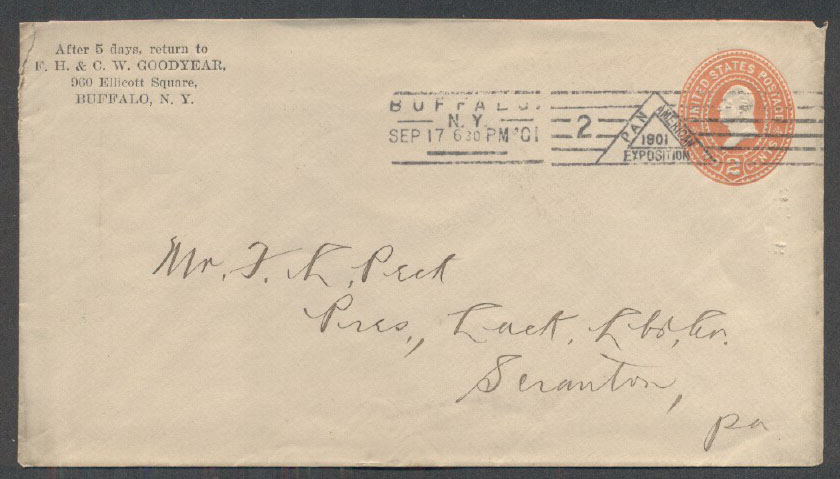 After 5 days, return to
F. H. & C. W. GOODYEAR,
960 Ellicott Square,
BUFFALO, N. Y.
BUFFALO.
N.Y.
SEP 17 6 30 PM '01
2
PAN
AMERICAN
1901
EXPOSITION
UNITED STATES POSTAGE
2 CENTS
Mr. F. K. Peck
Pres., Lack. Lbr. Co.
Scranton,
Pa